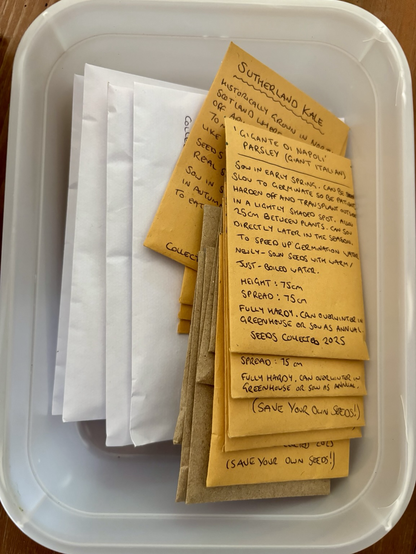 COLLE
SUTHERLAND KALE
HISTORICALLY GROWN IN NOR
SCOTLAND
OFF
TO
LIKE
SEEDS
REAL
SOW IN
IN AUTUM
TO
COLLEC
'GIGANTE DI NAPOLI'
PARSLEY (GIANT ITALIAN)
SOW IN EARLY SPRING. CAN BE
SLOW TO GERMINATE SO BE PATIENT
HARDEN OFF AND TRANSPLANT OUTSIDE
IN A LIGHTLY SHADED SPOT. ALLOW
75CM BETWEEN PLANTS. CAN SOW
DIRECTLY LATER IN THE SEASON.
TO SPEED UP GERMINATION WATER
NEWLY-SOWN SEEDS WITH WARM/
JUST-BOILED WATER.
HEIGHT: 75cm
SPREAD: 75cm
FULLY HARDY. CAN OVERWINTER IN
GREENHOUSE OR SOW AS ANNUAL.
SEEDS COLLECTED 2025
SPREAD: 75 cm
FULLY HARDY. CAN OVERWINTER IN
GREENHOUSE OR SOW AS ANNUAL.
(SAVE YOUR OWN SEEDS!)
2025
(SAVE YOUR OWN SEEDS!)